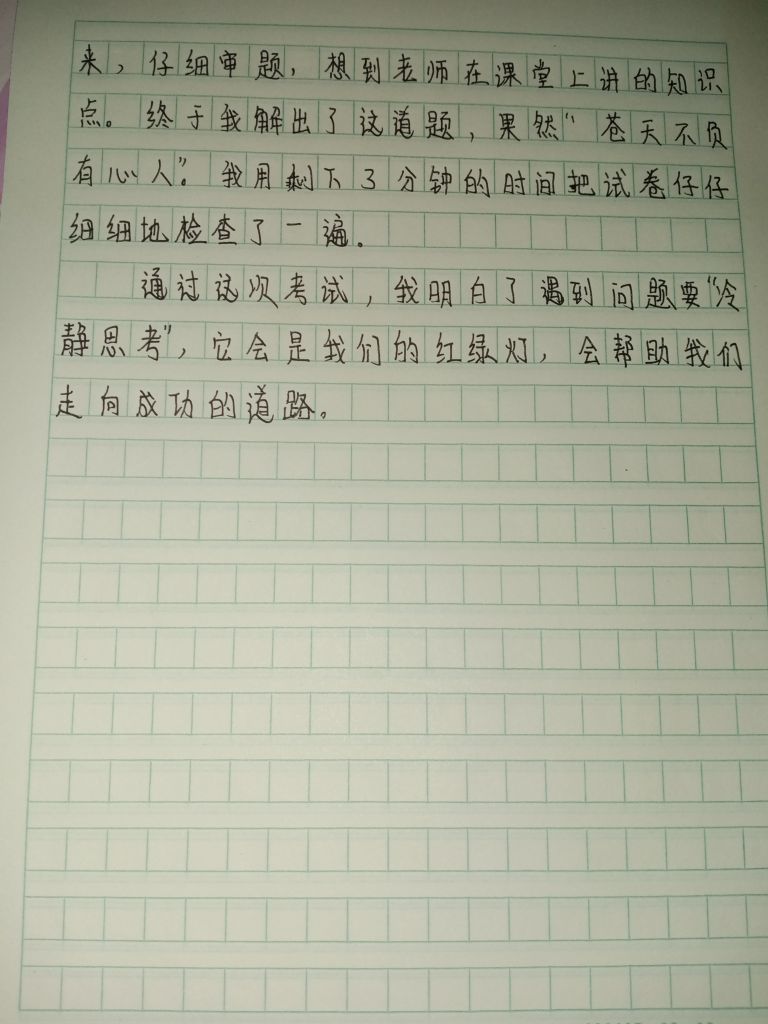 来，仔细审题，想到老师在课堂上讲的知识
点。终于我解出了这道题，果然“苍天不负
有心人”。我用剩下3分钟的时间把试卷仔仔
细细地检查了一遍。
通过这次考试，我明白了遇到问题要“冷
静思考”，它会是我们的红绿灯，会帮助我们
走向成功的道路。